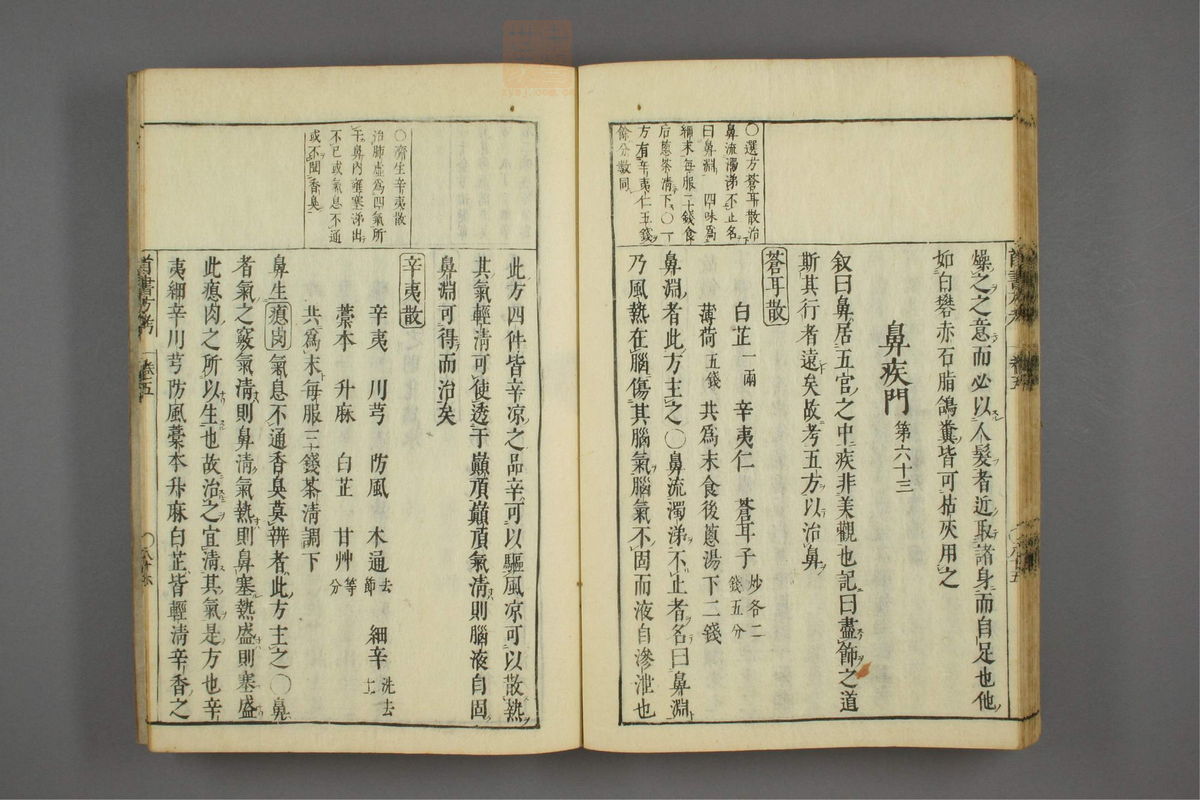 燥之之意而必以人髮者近取諸身而自足也他
如白礬赤石脂鴿糞皆可枯灰用之
鼻疾門 第六十三
叙曰鼻居五官之中疾非美觀也記曰盡飾之道
斯其行者遠矣故考五方以治鼻
蒼耳散
白芷一兩 辛夷仁 蒼耳子炒各二錢五分
薄荷五錢 共爲末食後蔥湯下二錢
鼻淵者此方主之○鼻流濁涕不止者名曰鼻淵
乃風熱在腦傷其腦氣腦氣不固而液自滲泄也
○選方蒼耳散治
鼻流濁涕不止名
曰鼻淵 四味爲
細末每服二錢食
后蔥茶清下○一
方有辛夷仁五錢
餘分數同
此方四件皆辛凉之品辛可以驅風凉可以散熱
其氣輕清可使透于巔頂巔頂氣清則腦液自固
鼻淵可得而治矣
辛夷散
辛夷 川芎 防風 木通去節 細辛洗去土
藁本 升麻 白芷 甘艸等分
共爲末每服三錢茶清調下
鼻生瘜肉氣息不通香臭莫辨者此方主之○鼻
者氣之竅氣清則鼻清氣熱則鼻塞熱盛則塞盛
此瘜肉之所以生也故治之宜清其氣是方也辛
夷細辛川芎防風藁本升麻白芷皆輕清辛香之
○濟生辛夷散
治肺虛爲四氣所
干鼻內壅塞涕出
不已或氣息不通
或不聞香臭
首書方考 卷五